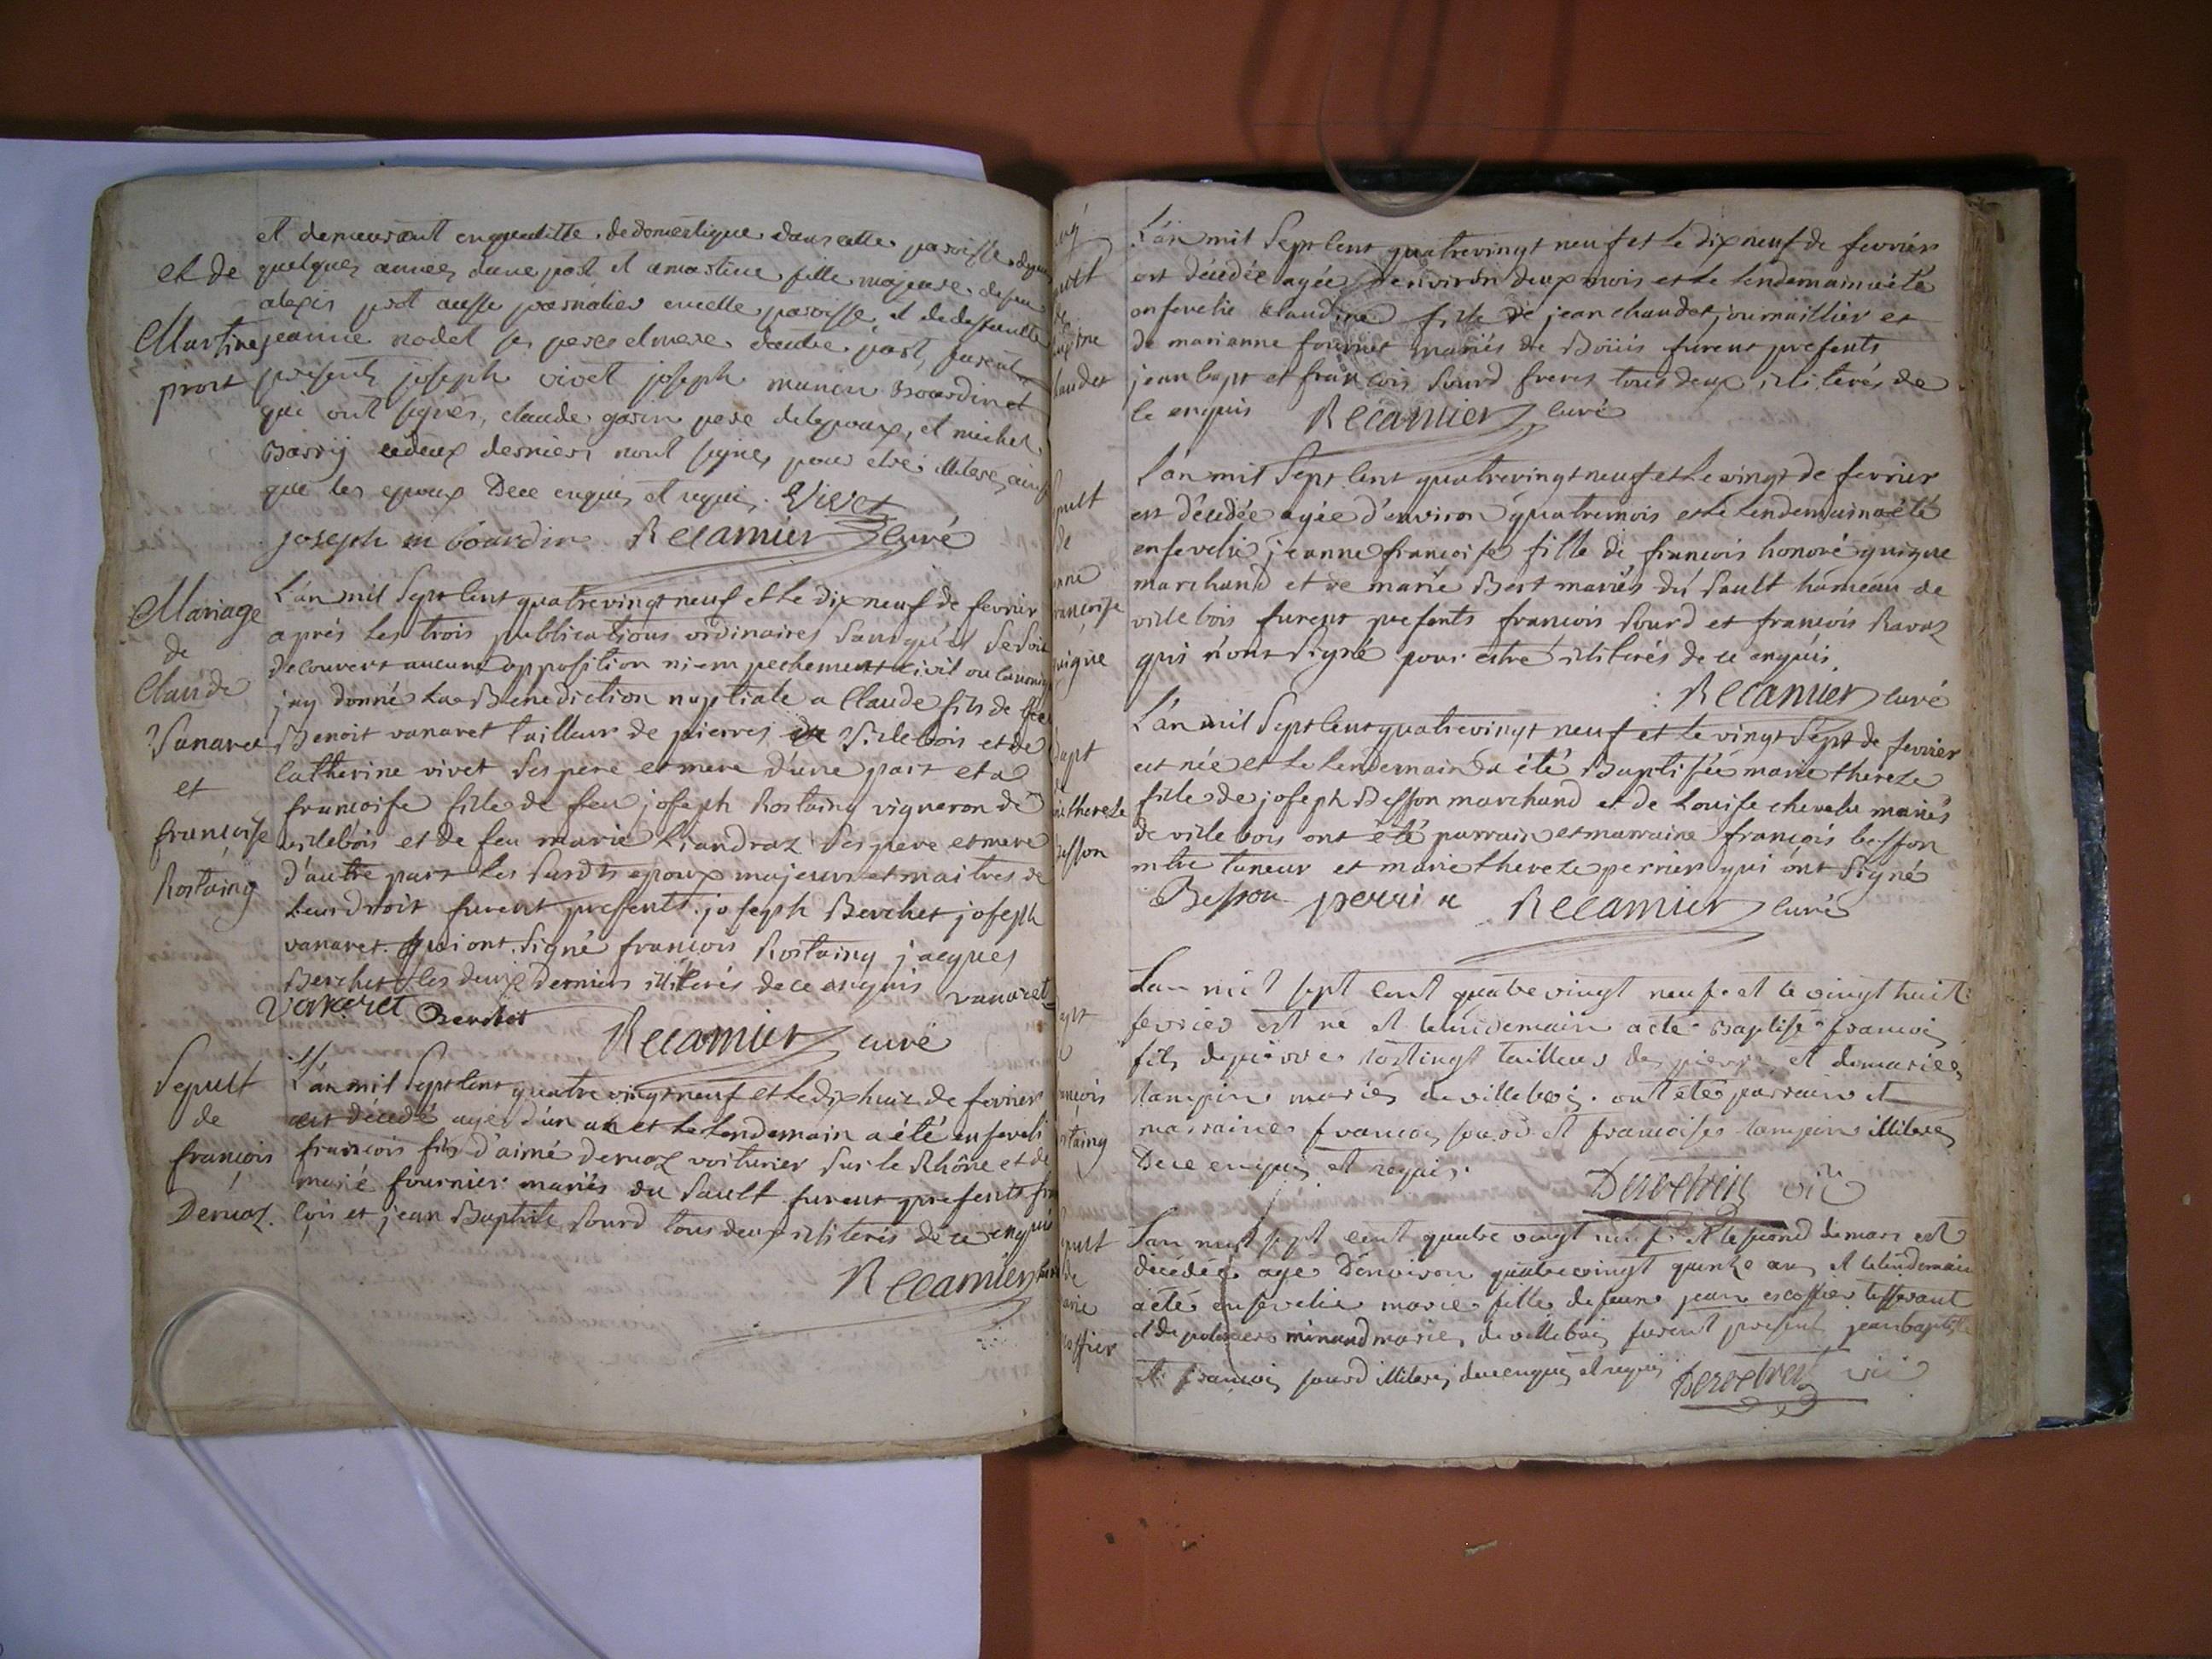 et demeurant en qualitte de domestique dans cette paroisse depuis
et de quelques années d'une part et a martine fille majeure de feu
alexis prost aussi journalier en cette paroisse et de deffunte
Martine jeanne nodet ses pere et mere d'autre part, furent
prost présents joseph vivet joseph munin Bourdin et
qui ont signés, claude garin pere de lepoux, et michel
Barry ces deux derniers n'ont signes pour etre illiteres, ainsi
que les epoux De ce enquis et requis. Vivet
joseph m bourdin Recamier curé
Mariage
de
Claude
Vanaret
et
françoise
Rostaing
L'an mil Sept Cent quatrevingt neuf et le dix neuf de fevrier
aprés les trois publications ordinaires sans qu'il se soit
decouvert aucune opposition ni empechement civil ou canonique
j'ay donné la Benediction nuptiale a Claude fils de
Benoit vanaret tailleur de pierres de Villebois et de
Catherine vivet ses pere et mere d'une part et a
françoise fille de feu joseph Rostaing vigneron de
villebois et de feu marie Liandraz ses pere et mere
d'autre part les susdts epoux majeurs et maitres de
leurs droit furent presents joseph Berchet joseph
vanaret qui ont signé françois Rostaing jacques
Berchet les deux derniers illiterés de ce enquis vanaret
Vanaret Berchet
Recamier curé
Sepult
de
françois
Deruaz.
L'an mil Sept Cent quatre vingt neuf et le dix huit de fevrier
est décedé agé d'un an et le lendemain a été enseveli
françois fils d'aimé deruaz voiturier sur le Rhône et de
marie fournier mariés du Sault furent presents fran
çois et jean Baptiste Sourd tous deux illiterés de ce enquis
Recamier curé
L'an mil Sept Cent quatrevingt neuf et le dix neuf de fevrier
est décedée agée d'environ deux mois et le lendemain a été
ensevelie Claudine fille de jean chaudet journaillier et
de marianne fournier mariés de Boüis furent presents
jean bapt et françois Sourd freres tous deux illiterés de
ce enquis Recamier curé
sepult
de
jeanne
françoise
quigue
L'an mil Sept Cent quatrevingt neuf et le vingt de fevrier
est décedée agée d'environ quatre mois et le lendemain a été
ensevelie jeanne françoise fille de françois honoré quigue
marchand et de marie Bert mariés du Sault hameau de
villebois furent presents françois Sourd et françois Ravaz
qui n'ont signé pour etre illiterés de ce enquis.
Recamier curé
bapt
de
marie thereze
besson
L'an mil Sept Cent quatrevingt neuf et le vingt Sept de fevrier
est née et le lendemain a été Baptisée marie thereze
fille de joseph Besson marchand et de Louise chevalu mariés
de villebois ont été parrain et marraine françois besson
mtre taneur et marie thereze perrier qui ont signé
Besson perri Recamier curé
L'an mil sept cent quatre vingt neuf et le vingt huit
fevrier est né et le lendemain a été Baptisé françois
fils de pierre rostingt tailleur de pierre et de marie
tampin mariés de villebois. ont été parrain et
marraine françois sourd et françoise tampin illiteres
De ce enquis et requis.
vic
sepult
de
marie
escoffier
L'an mil sept cent quatre vingt neuf et le second de mars est
décedée agée d'environ quatrevingt quinze ans et le lendemain
a été ensevelie marie fille de feu jean escoffier tisserant
et de minand mariés de villebois furent present jean baptiste
et françois sourd illiteres de ce enquis et requis vic